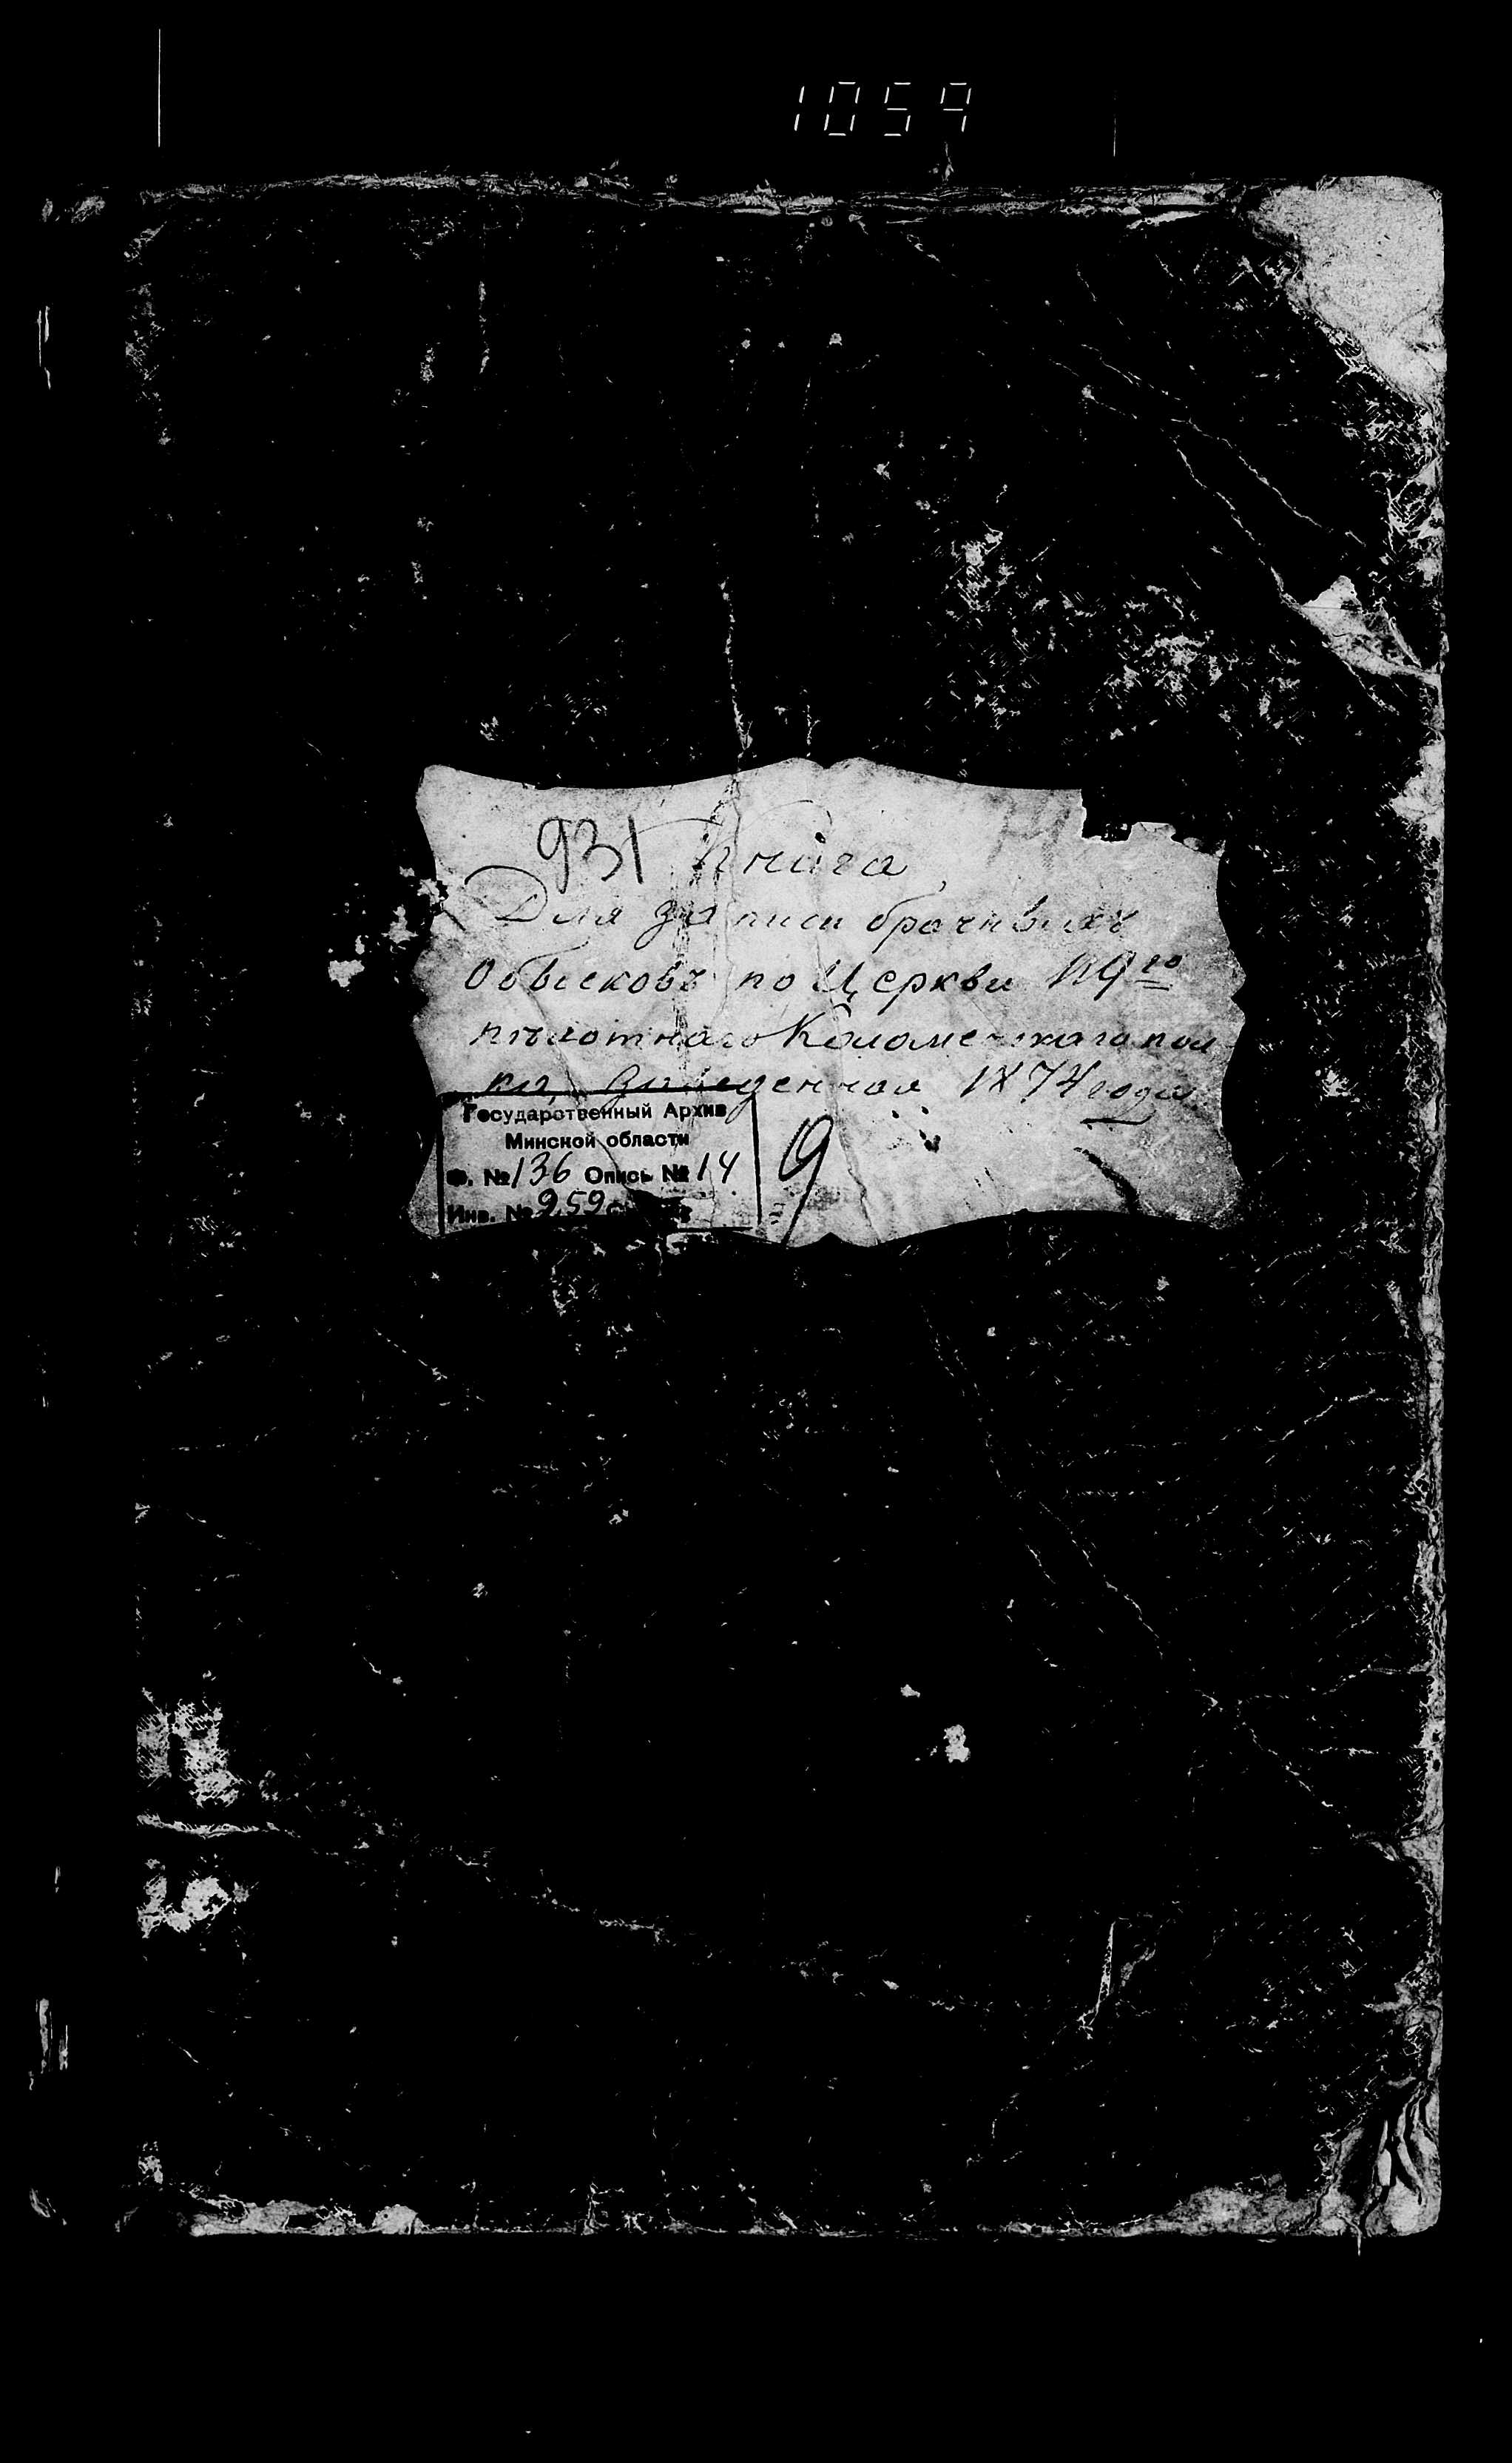 1059
931 Книга
Для записи брачныхъ
Обысковъ по Церкви 119го
пѣхотнаго Коломенскаго пол-
ка, заведенная 1874 года
Государственный Архив
Минской области
Ф. № 136 Опись № 14
Инв. № 959
9